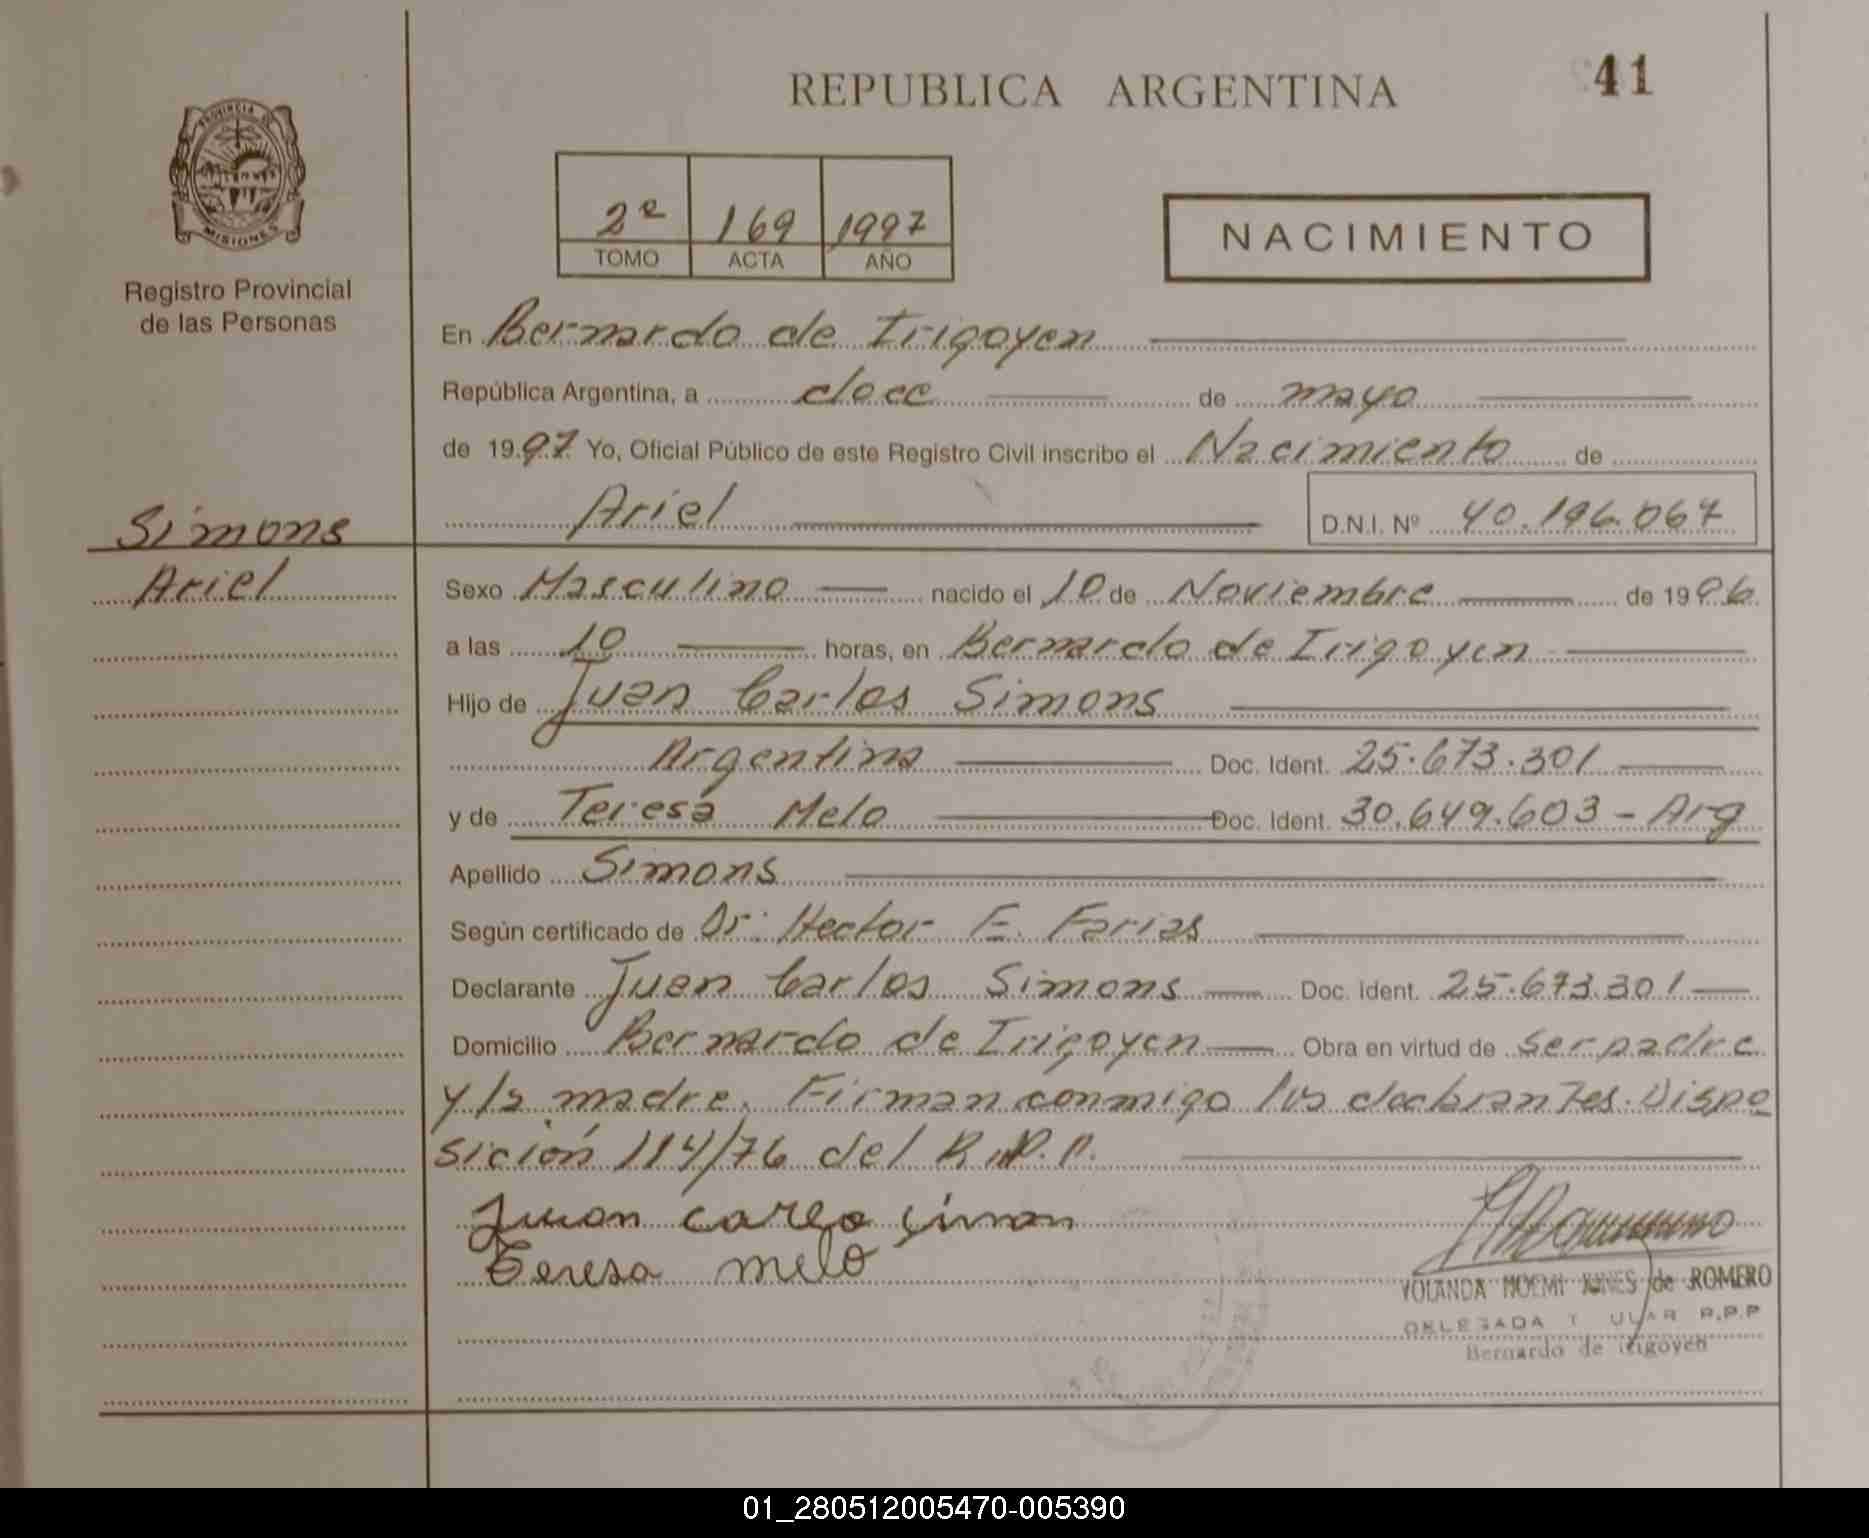 41
REPUBLICA ARGENTINA
PROVINCIA DE
MISIONES
Registro Provincial
de las Personas
2º 169 1997
TOMO ACTA AÑO
NACIMIENTO
En Bernardo de Irigoyen
República Argentina, a doce de mayo
de 1997 Yo, Oficial Público de este Registro Civil inscribo el Nacimiento de
Ariel D.N.I. Nº 40.196.067
Simons
Ariel
Sexo Masculino nacido el 10 de Noviembre de 1996
a las 10 horas, en Bernardo de Irigoyen
Hijo de Juan Carlos Simons
Argentina Doc. Ident. 25.673.301
y de Teresa Melo Doc. Ident. 30.649.603 - Arg
Apellido Simons
Según certificado de Dr: Hector E. Farias
Declarante Juan Carlos Simons Doc. Ident. 25.673.301
Domicilio Bernardo de Irigoyen Obra en virtud de ser padre
y la madre. Firman conmigo los declarantes. Dispo
sición 114/76 del R.P.P.
Juan carlo simon
Teresa melo
YOLANDA NOEMI de ROMERO
DELEGADA R.P.P
Bernardo de Irigoyen
01_280512005470-005390